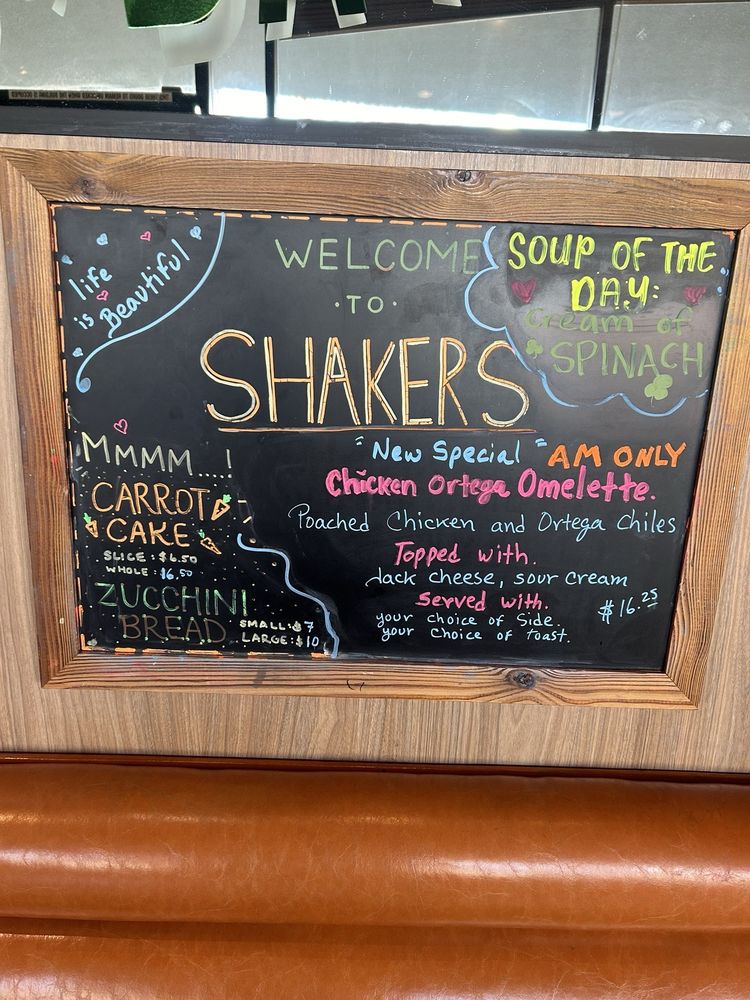 life
is Beautiful
WELCOME
·TO·
SHAKERS
SOUP OF THE
DAY:
Cream of
SPINACH
MMMM...!
CARROT
CAKE
SLICE: $6.50
WHOLE: $16.50
ZUCCHINI
BREAD
SMALL: $7
LARGE: $10
"New Special" AM ONLY
Chicken Ortega Omelette.
Poached Chicken and Ortega Chiles
Topped with.
Jack cheese, sour cream
Served with.
your choice of Side.
your choice of toast.
$16.25